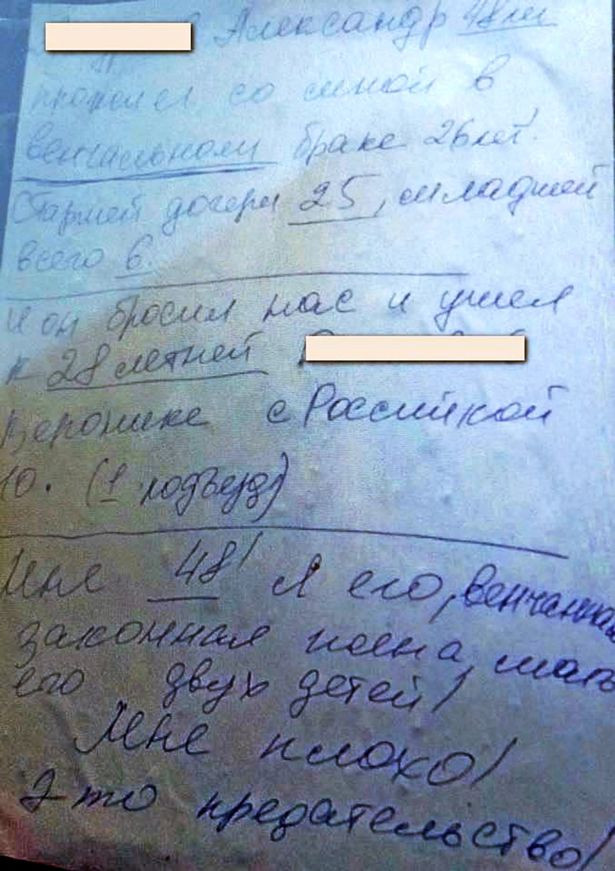 Александр 48 лет
прожил со мной в
венчальном браке 26 лет.
Старшей дочери 25, младшей
всего 6.
И он бросил нас и ушел
к 28 летней
Веронике с Российской
10. (1 подъезд)
Мне 48! Я его, венчанная
законная жена, мать
его двух детей!
Мне плохо!
Это предательство!